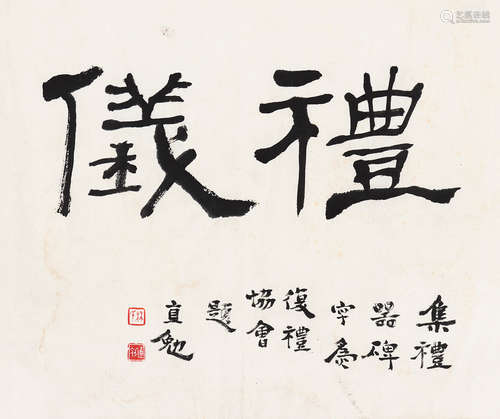 禮儀
集禮
器碑
字爲
復禮
協會
題
直勉